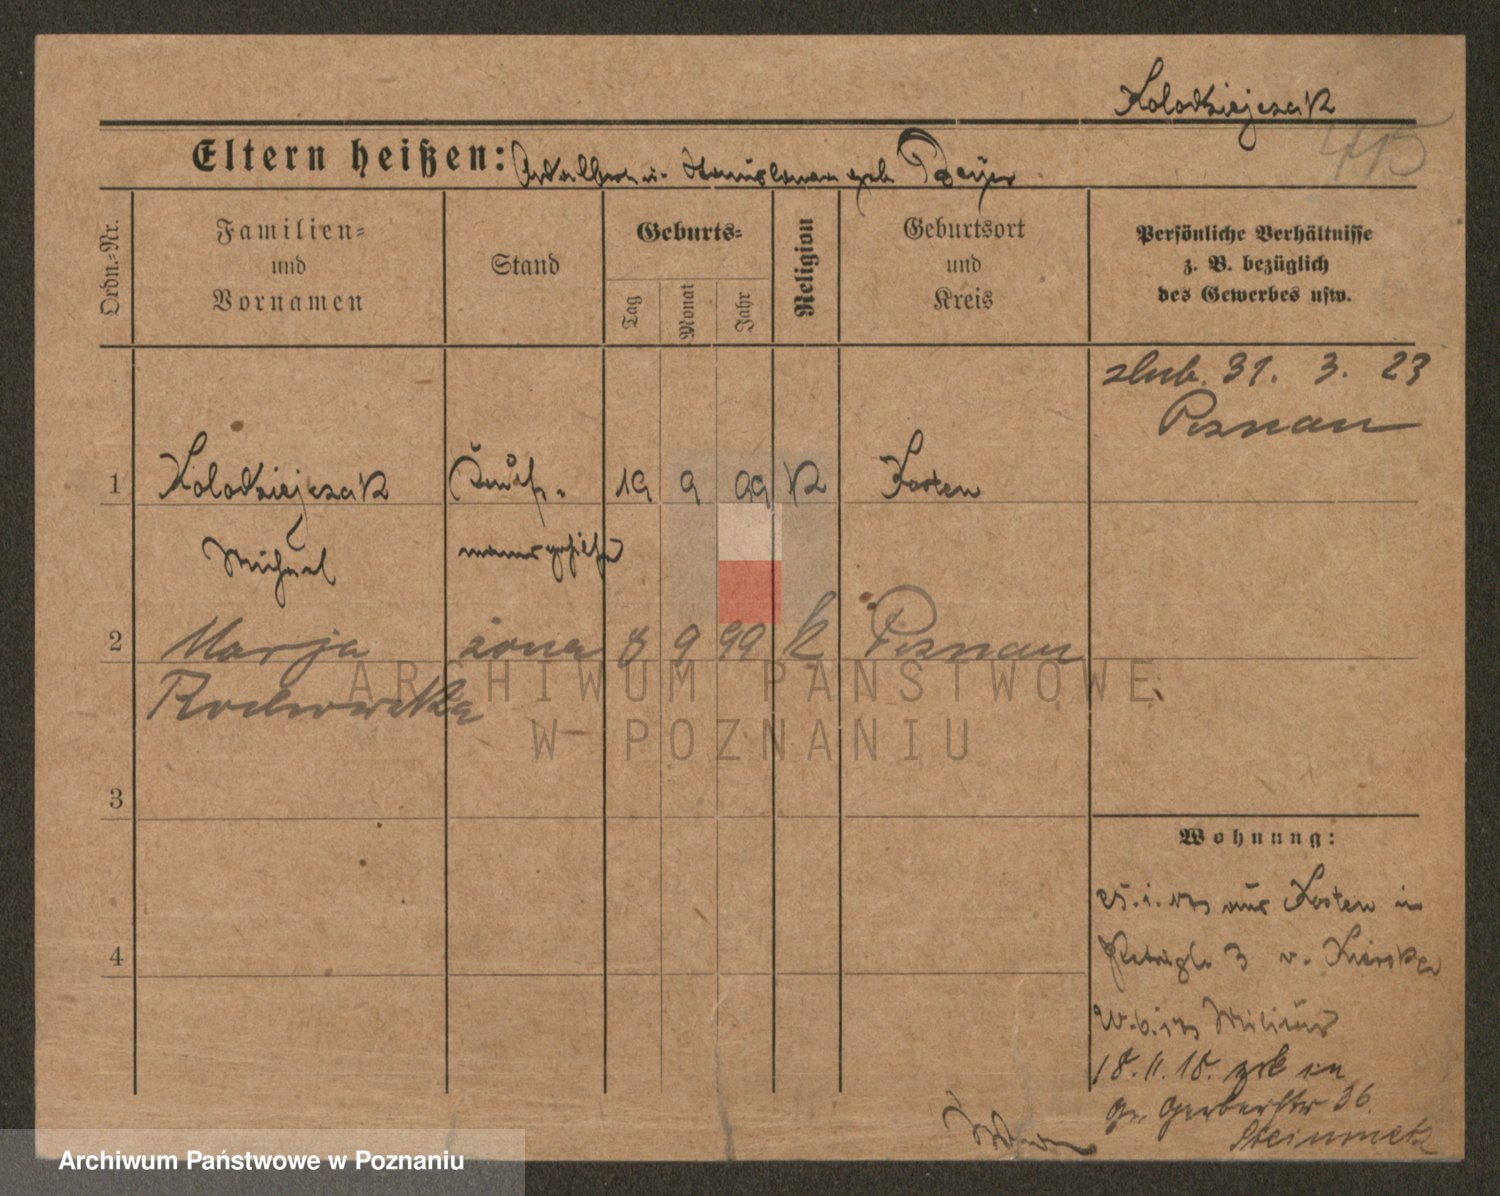 Kolodziejczak
415
Eltern heißen: Adalbert u. Stanislawa geb. Beyer
Ordn.-Nr.
Familien-
und
Vornamen
Stand
Geburts-
Tag
Monat
Jahr
Religion
Geburtsort
und
Kreis
Persönliche Verhältnisse
z. B. bezüglich
des Gewerbes usw.
ślub. 31. 3. 23
Poznan
1 Kolodziejczak Kauf- 19 9 99 K Kosten
Michael mannsgehilfe
2 Marja żona 8 9 99 k Poznan
3
4
Wohnung:
25.1.17 aus Kosten in
3 v.
Militär
18.11.18. zrk in
Gr. Gerberstr 36.
Steinmetz
ARCHIWUM PAŃSTWOWE
W POZNANIU
Archiwum Państwowe w Poznaniu